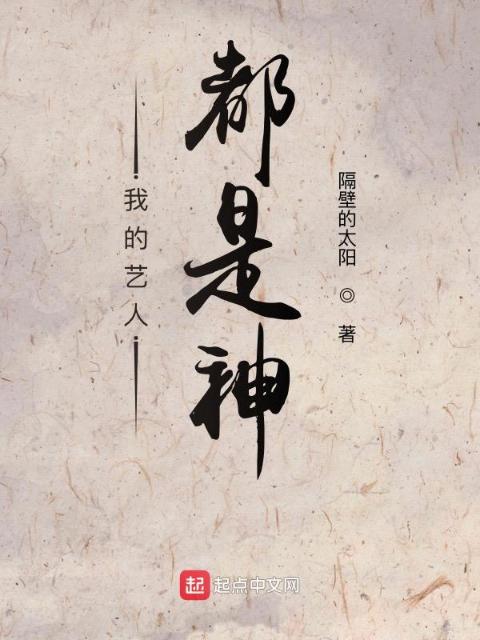 我的艺人
都是神
隔壁的太阳 ◎ 著
起 起点中文网